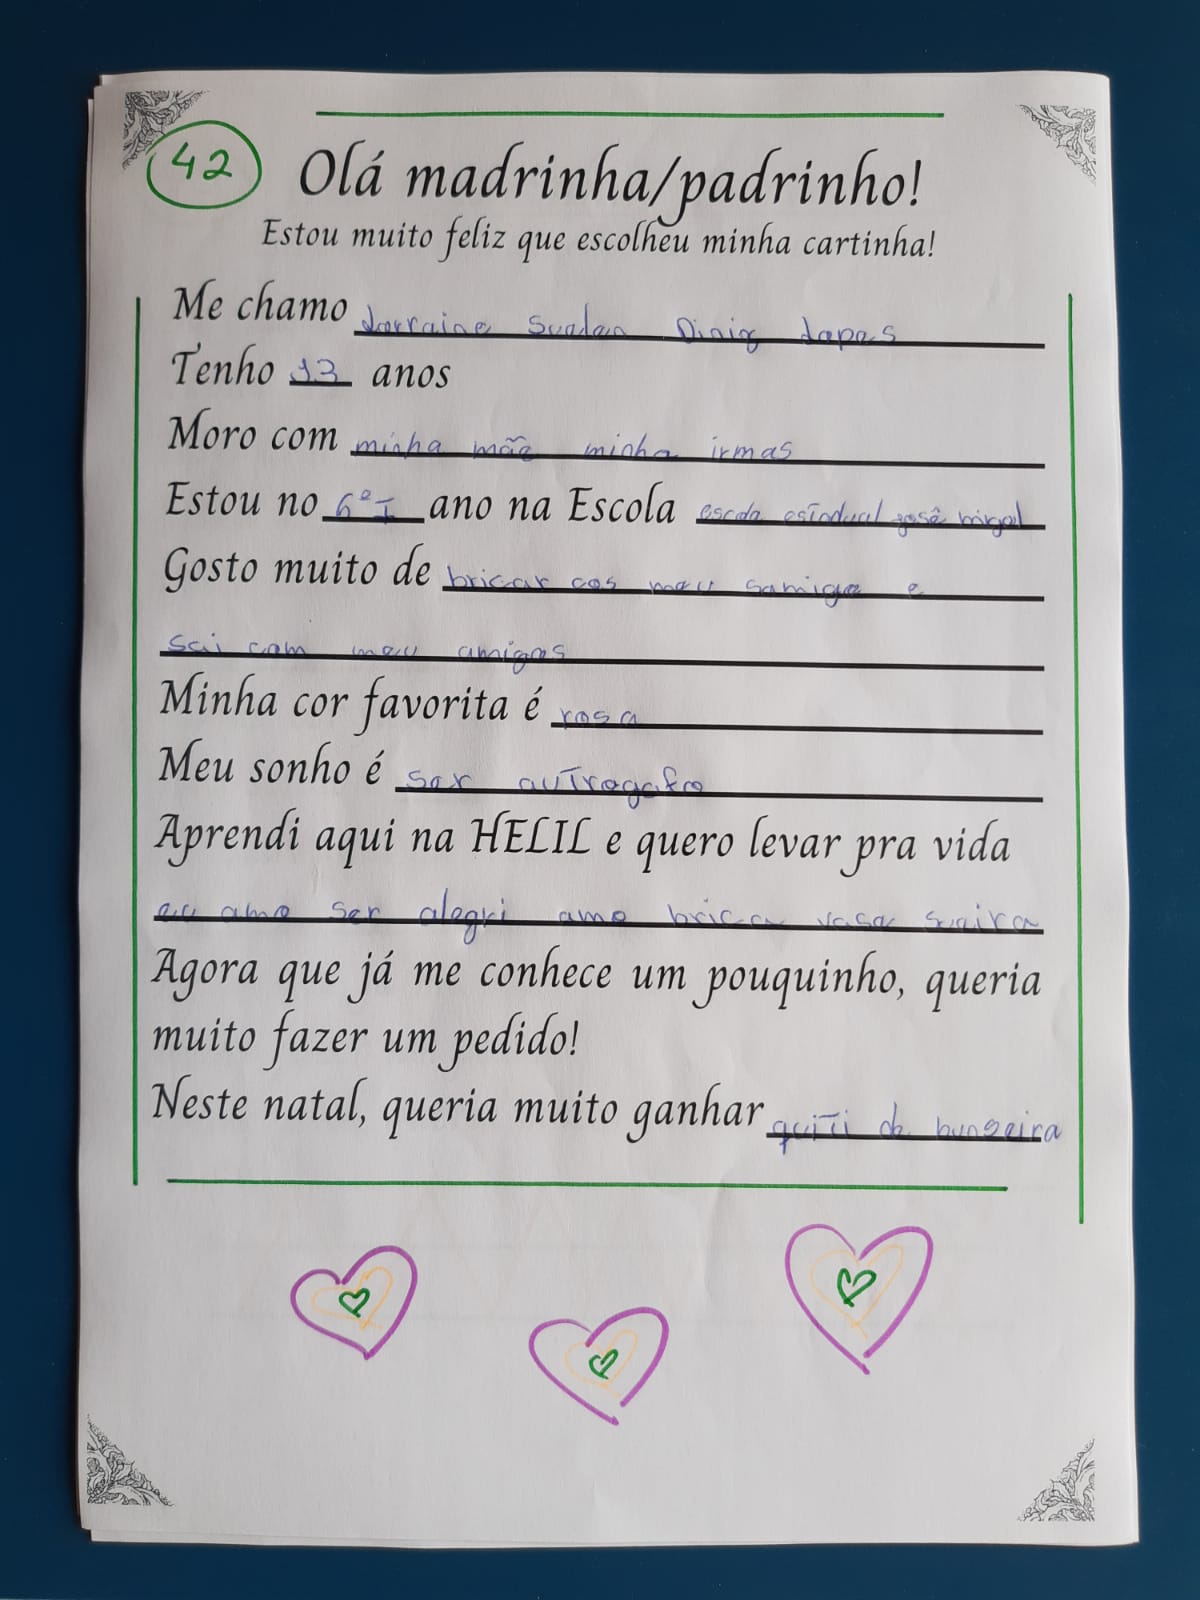 42
Olá madrinha/padrinho!
Estou muito feliz que escolheu minha cartinha!
Me chamo Lorraine Suelen Diniz Lopes
Tenho 13 anos
Moro com minha mãe minha irmas
Estou no 6º I ano na Escola escola estadual josé
Gosto muito de bricar cos meu samiga e
sai com meu amigos
Minha cor favorita é rosa
Meu sonho é ser
Aprendi aqui na HELIL e quero levar pra vida
eu amo ser alegri amo brica
Agora que já me conhece um pouquinho, queria
muito fazer um pedido!
Neste natal, queria muito ganhar quiti de